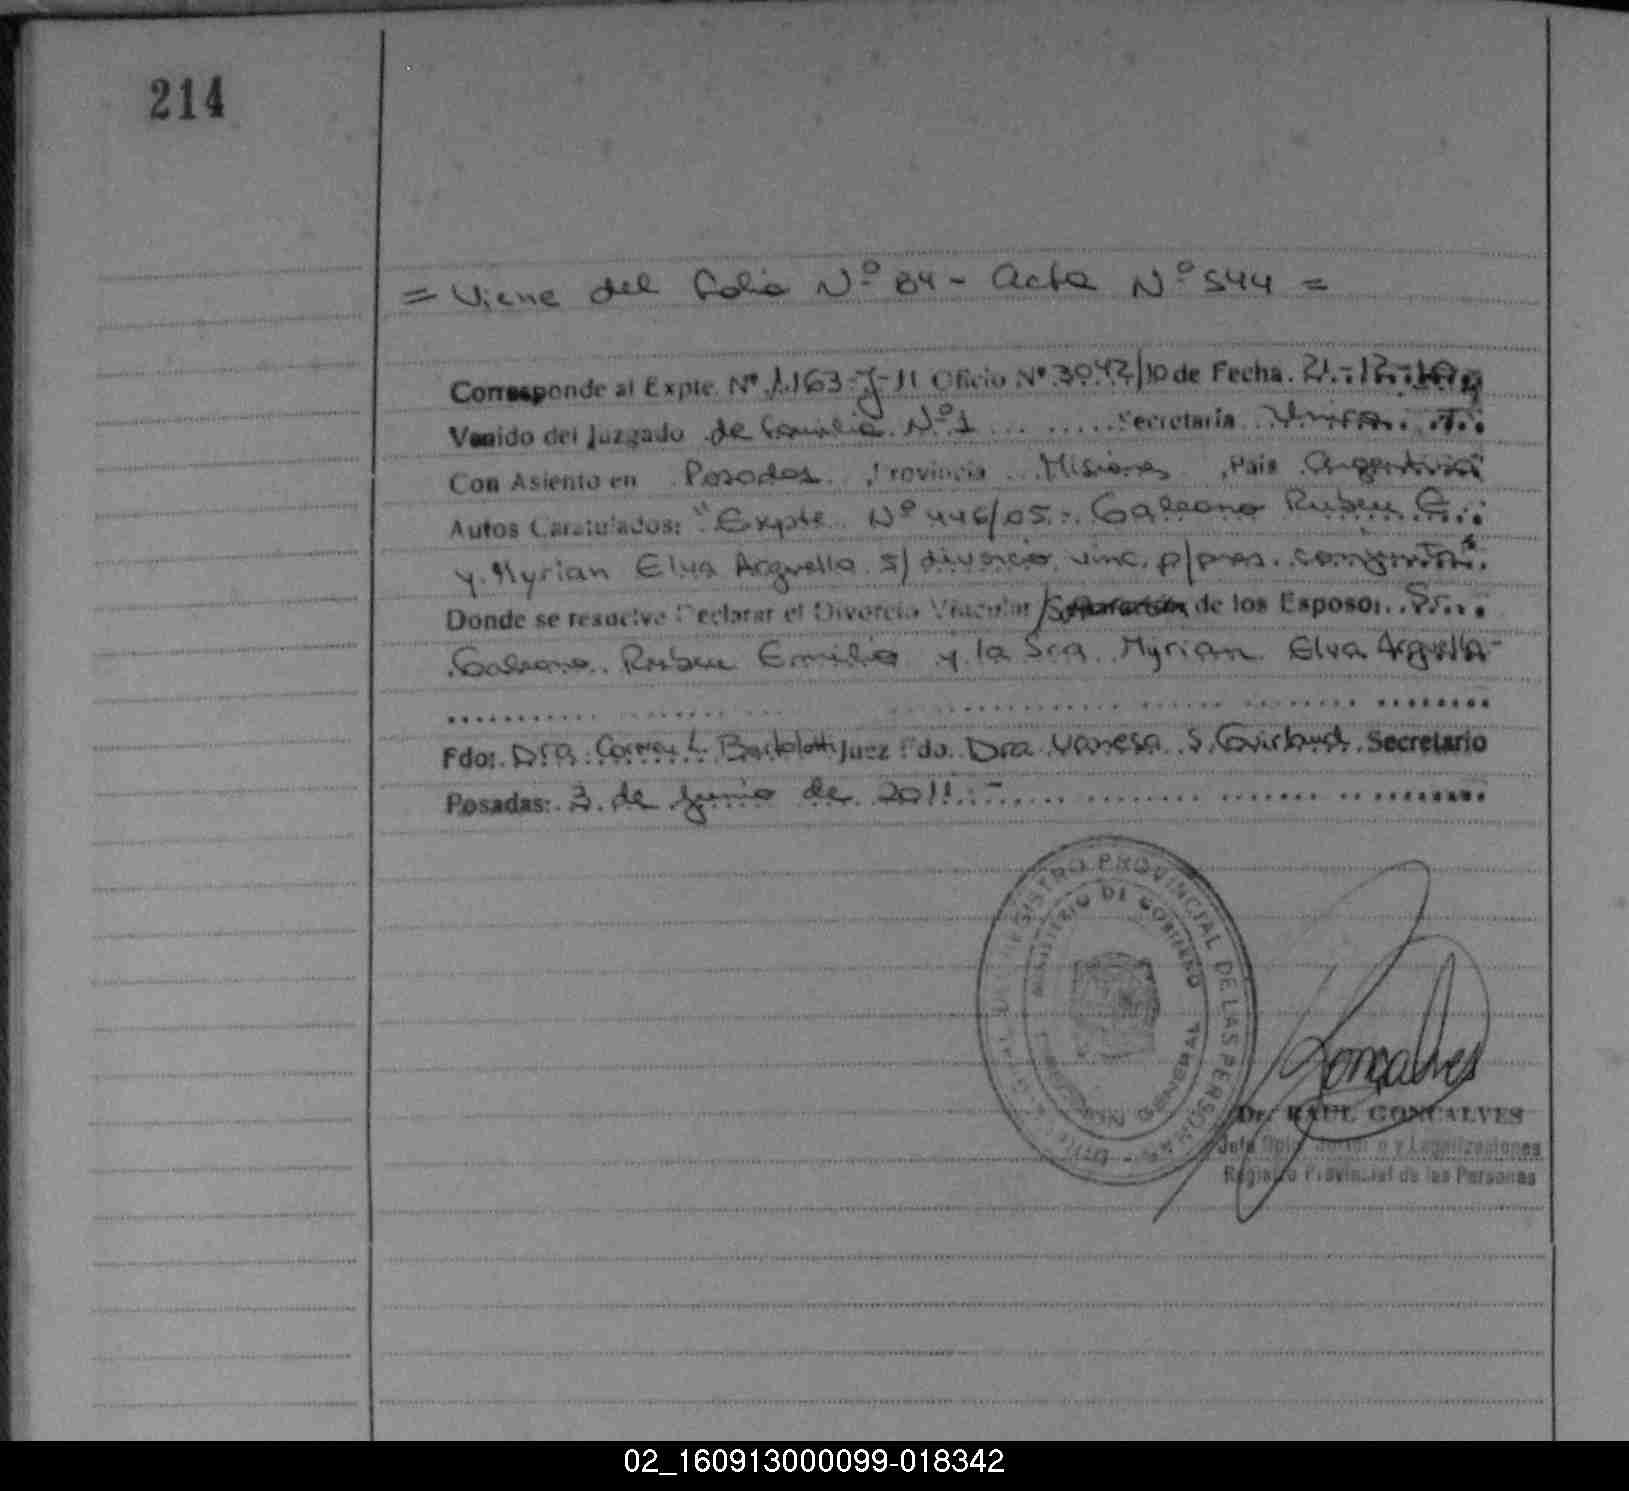 214
= Viene del Folio Nº 84 - Acta Nº 544 =
Corresponde al Expte. Nº 1163-J-11 Oficio Nº 3042/10 de Fecha. 21-12-10 y
Venido del Juzgado de Familia Nº 1 Secretaría Única
Con Asiento en Posadas Provincia Misiones País Argentina
Autos Caratulados: "Expte Nº 446/05 - Galeano Ruben E.
y Myrian Elva Arguello s/ divorcio vinc. p/pres. conjunta"
Donde se resuelve Declarar el Divorcio Vincular / Separación de los Esposos Sr.
Galeano Ruben Emilio y la Sra. Myrian Elva Arguello -
Fdo: Dra. L. Juez Fdo. Dra Vanesa S. Secretario
Posadas: 3 de Junio de 2011 -
REGISTRO PROVINCIAL DE LAS PERSONAS
MINISTERIO DE GOBIERNO
DIRECCION GENERAL
Gonçalves
Dr. RAUL GONCALVES
Jefe y Legalizaciones
Registro Provincial de las Personas
02_160913000099-018342